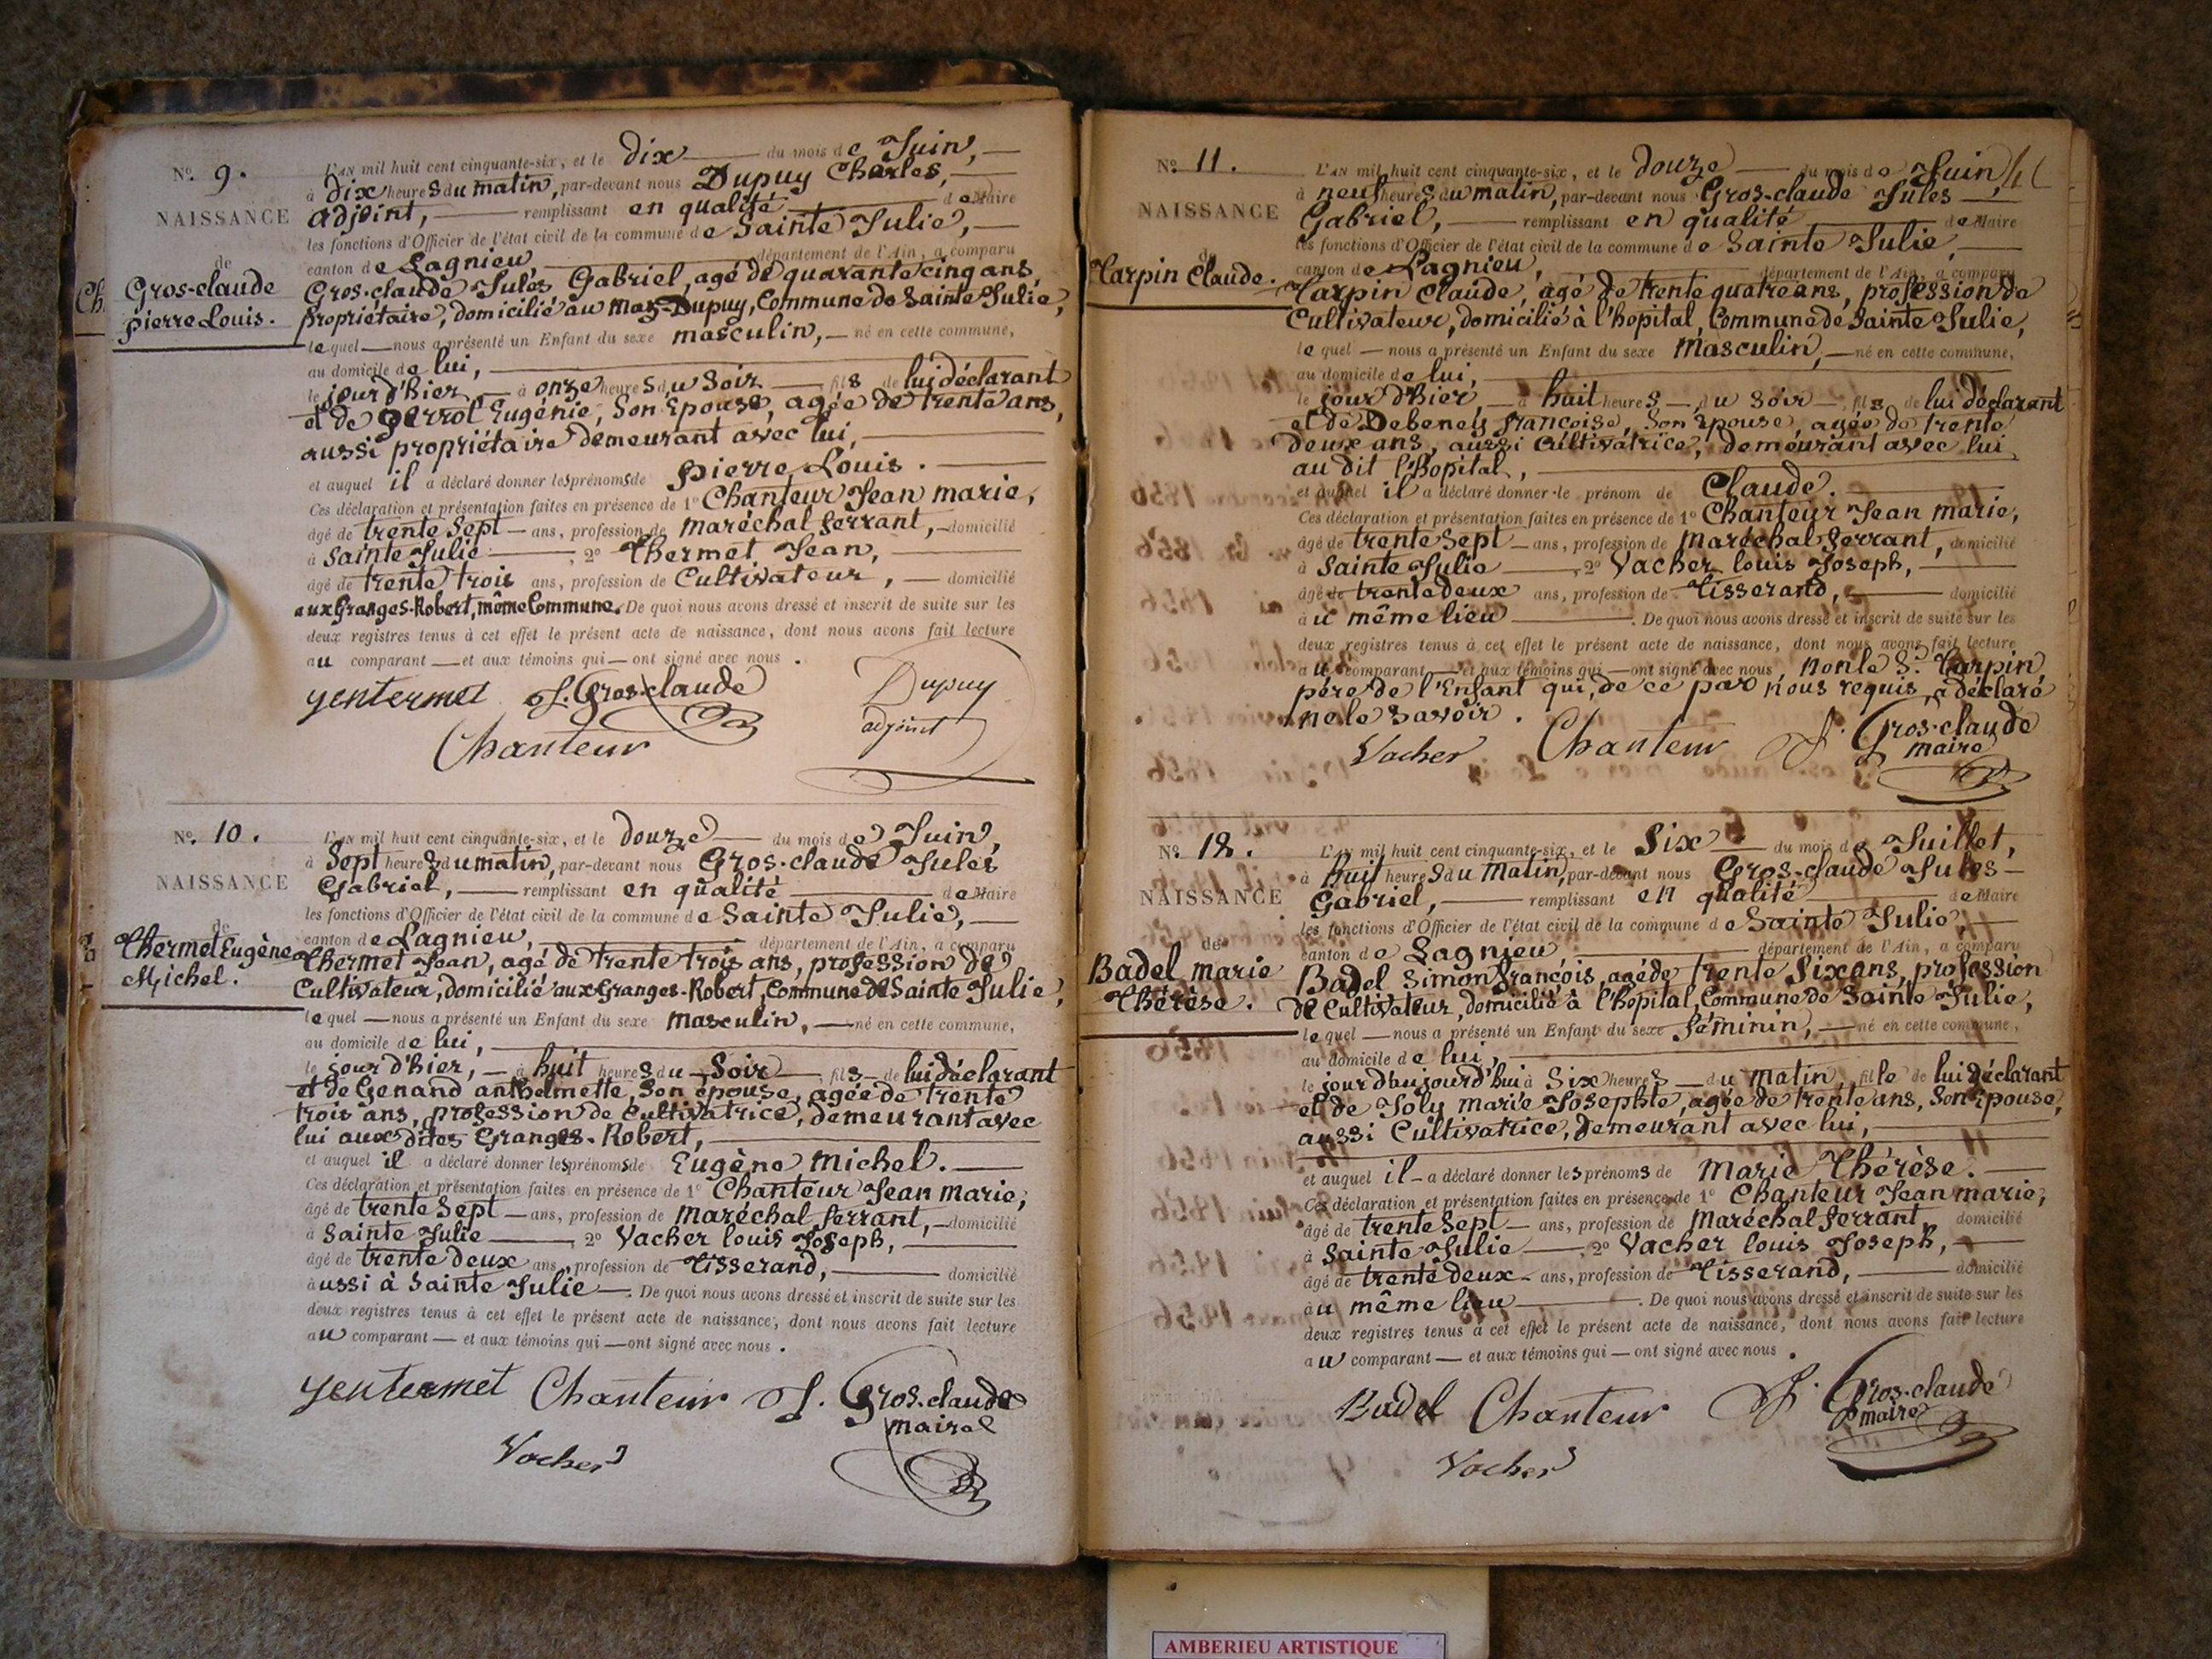 Nº. 9.
NAISSANCE
de
Gros-claude
pierre Louis.
L'AN mil huit cent cinquante-six, et le dix du mois de Juin,
à dix heures du matin, par-devant nous Dupuy Charles,
adjoint, remplissant en qualité de Maire
les fonctions d'Officier de l'état civil de la commune de Sainte Julie,
canton de Lagnieu, département de l'Ain, a comparu
Gros-claude Jules Gabriel, agé de quarante cinq ans,
propriétaire, domicilié au Mas-Dupuy, Commune de Sainte Julie,
lequel nous a présenté un Enfant du sexe masculin, né en cette commune,
au domicile de lui,
le jour d'hier à onze heures du Soir fils de lui déclarant
et de perrol Eugénie, Son Epouse, agée de trente ans,
aussi propriétaire demeurant avec lui,
et auquel il a déclaré donner les prénoms de pierre Louis.
Ces déclaration et présentation faites en présence de 1º Chanteur Jean marie,
âgé de trente Sept ans, profession de maréchal ferrant, domicilié
à Sainte Julie, 2º Thermet Jean,
âgé de trente trois ans, profession de Cultivateur, domicilié
aux Granges-Robert, même Commune. De quoi nous avons dressé et inscrit de suite sur les
deux registres tenus à cet effet le présent acte de naissance, dont nous avons fait lecture
au comparant et aux témoins qui ont signé avec nous.
J. Gros-claude
Dupuy
adjoint
Chanteur
Nº. 10.
NAISSANCE
de
Thermet Eugène
Michel.
L'AN mil huit cent cinquante-six, et le douze du mois de Juin,
à Sept heures du matin, par-devant nous Gros-claude Jules
Gabriel, remplissant en qualité de Maire
les fonctions d'Officier de l'état civil de la commune de Sainte Julie,
canton de Lagnieu, département de l'Ain, a comparu
Thermet Jean, agé de trente trois ans, profession de
Cultivateur, domicilié aux Granges-Robert, Commune de Sainte Julie,
lequel nous a présenté un Enfant du sexe masculin, né en cette commune,
au domicile de lui,
le jour d'hier, à huit heures du Soir fils de lui déclarant
et de Genand anthelmette, Son épouse, agée de trente
trois ans, profession de Cultivatrice, demeurant avec
lui aux dites Granges-Robert,
et auquel il a déclaré donner les prénoms de Eugène Michel.
Ces déclaration et présentation faites en présence de 1º Chanteur Jean marie,
âgé de trente Sept ans, profession de maréchal ferrant, domicilié
à Sainte Julie, 2º Vacher louis Joseph,
âgé de trente deux ans, profession de Tisserand, domicilié
aussi à Sainte Julie. De quoi nous avons dressé et inscrit de suite sur les
deux registres tenus à cet effet le présent acte de naissance, dont nous avons fait lecture
au comparant et aux témoins qui ont signé avec nous.
Chanteur J. Gros-claude
maire
Vacher
Nº. 11.
NAISSANCE
de
Carpin Claude.
L'AN mil huit cent cinquante-six, et le douze du mois de Juin,
à neuf heures du matin, par-devant nous Gros-claude Jules
Gabriel, remplissant en qualité de Maire
les fonctions d'Officier de l'état civil de la commune de Sainte Julie,
canton de Lagnieu, département de l'Ain, a comparu
Carpin Claude, agé de trente quatre ans, profession de
Cultivateur, domicilié à l'hopital, Commune de Sainte Julie,
lequel nous a présenté un Enfant du sexe Masculin, né en cette commune,
au domicile de lui,
le jour d'hier à huit heures du Soir fils de lui déclarant
et de Debeney françoise, Son Epouse, agée de trente
deux ans, aussi Cultivatrice, demeurant avec lui
au dit l'hopital,
et auquel il a déclaré donner le prénom de Claude.
Ces déclaration et présentation faites en présence de 1º Chanteur Jean marie,
âgé de trente Sept ans, profession de maréchal ferrant, domicilié
à Sainte Julie, 2º Vacher louis Joseph,
âgé de trente deux ans, profession de Tisserand, domicilié
au même lieu. De quoi nous avons dressé et inscrit de suite sur les
deux registres tenus à cet effet le présent acte de naissance, dont nous avons fait lecture
au comparant et aux témoins qui ont signé avec nous, non le S. Carpin,
père de l'Enfant qui, de ce par nous requis, a déclaré
ne le Savoir.
Vacher Chanteur J. Gros-claude
maire
Nº. 12.
NAISSANCE
de
Badel marie
Thérèse.
L'AN mil huit cent cinquante-six, et le Six du mois de Juillet,
à huit heures du Matin, par-devant nous Gros-claude Jules
Gabriel, remplissant en qualité de Maire
les fonctions d'Officier de l'état civil de la commune de Sainte Julie,
canton de Lagnieu, département de l'Ain, a comparu
Badel Simon françois, agé de trente Six ans, profession
de Cultivateur, domicilié à l'hopital, Commune de Sainte Julie,
lequel nous a présenté un Enfant du sexe féminin, né en cette commune,
au domicile de lui,
le jour d'aujourd'hui à Six heures du matin, fille de lui déclarant
et de Joly marie Josephte, agée de trente ans, Son Epouse,
aussi Cultivatrice, demeurant avec lui,
et auquel il a déclaré donner les prénoms de Marie Thérèse.
Ces déclaration et présentation faites en présence de 1º Chanteur Jean marie,
âgé de trente Sept ans, profession de Maréchal ferrant, domicilié
à Sainte Julie, 2º Vacher louis Joseph,
âgé de trente deux ans, profession de Tisserand, domicilié
au même lieu. De quoi nous avons dressé et inscrit de suite sur les
deux registres tenus à cet effet le présent acte de naissance, dont nous avons fait lecture
au comparant et aux témoins qui ont signé avec nous.
Badel Chanteur J. Gros-claude
maire
Vacher
AMBERIEU ARTISTIQUE